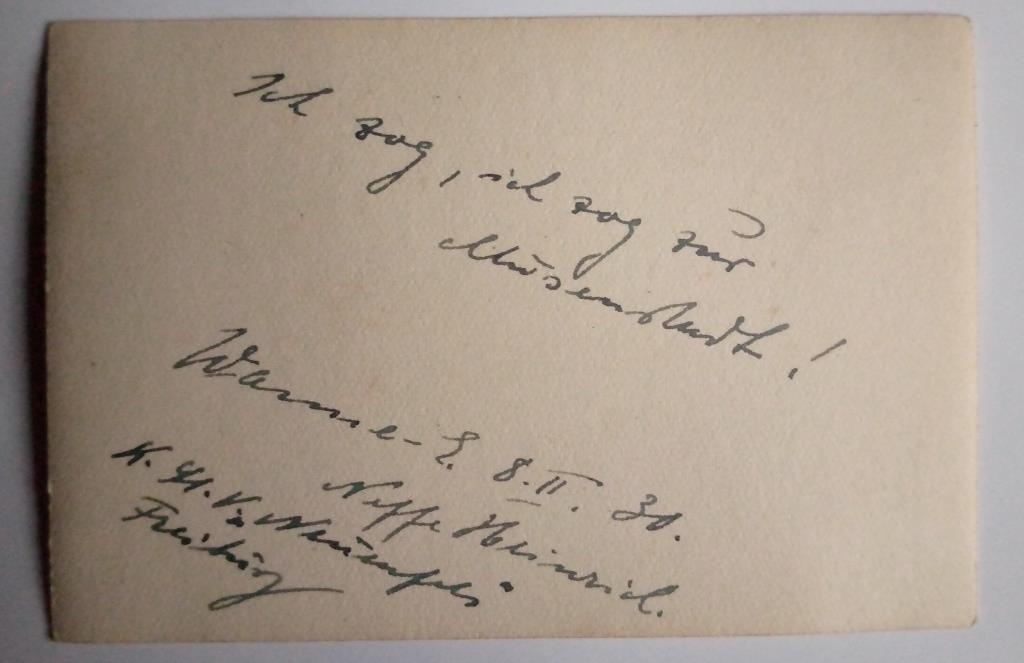 Ich zog, ich zog zur
Musenstadt!
Wanne-E. 8.II.30.
Neffe Heinrich.
K.St.V. "Neuenfels"
Freiburg